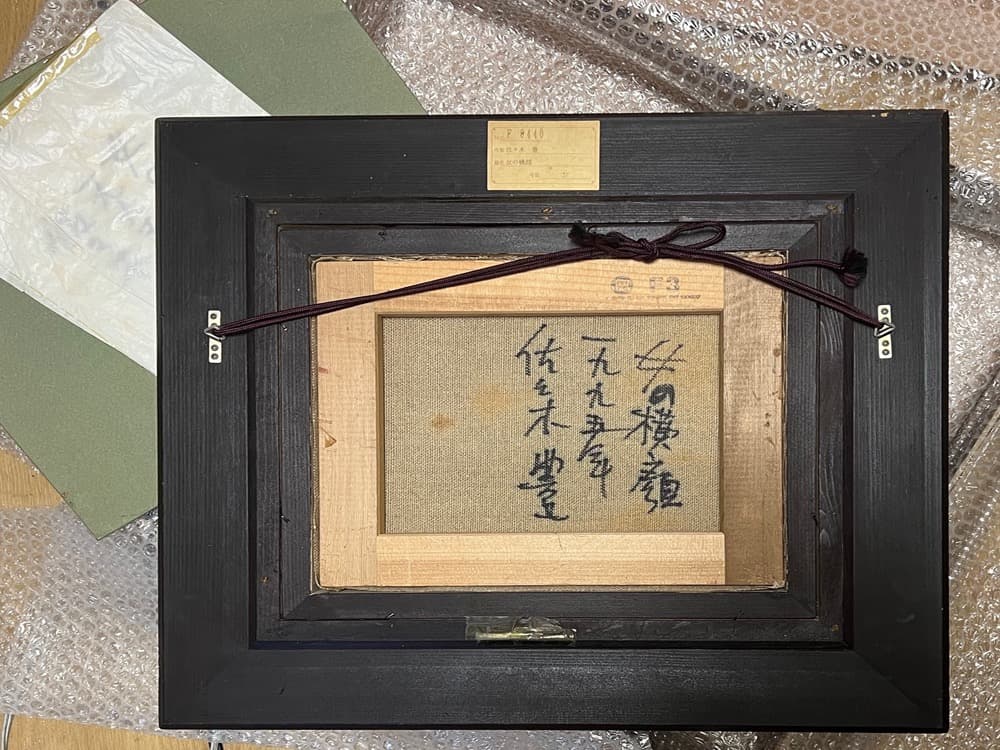 F 8440
佐々木 豊
女の横顔
F3
女の横顔
一九九五年
佐々木豊